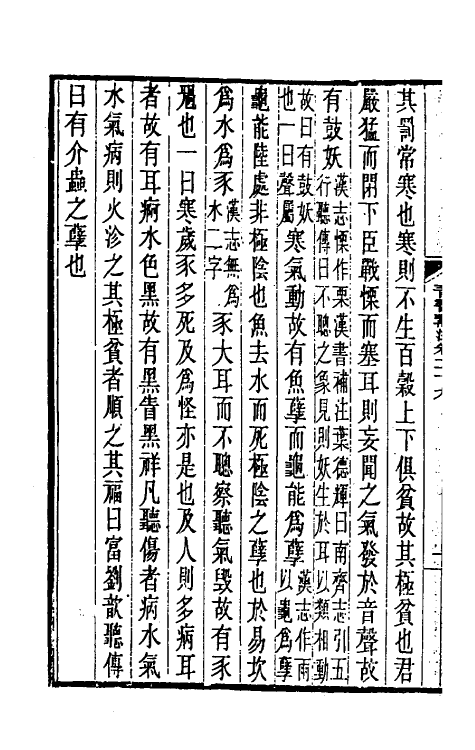 其罰常寒也寒則不生百穀上下俱貧故其極貧也君
嚴猛而閉下臣戰慄而塞耳則妄聞之氣發於音聲故
有鼓妖漢志慄作栗漢書補注葉德輝曰南齊志引五
行聽傳曰不聰之象見則妖生於耳以類相動
故曰有鼓妖
也一曰聲屬寒氣動故有魚孽而龜能爲孽漢志作雨
以龜爲孽
龜能陸處非極陰也魚去水而死極陰之孽也於易坎
爲水爲豕漢志無爲
水二字豕大耳而不聰察聽氣毀故有豕
旤也一曰寒歲豕多死及爲怪亦是也及人則多病耳
者故有耳痾水色黑故有黑眚黑祥凡聽傷者病水氣
水氣病則火沴之其極貧者順之其福曰富劉歆聽傳
曰有介蟲之孽也